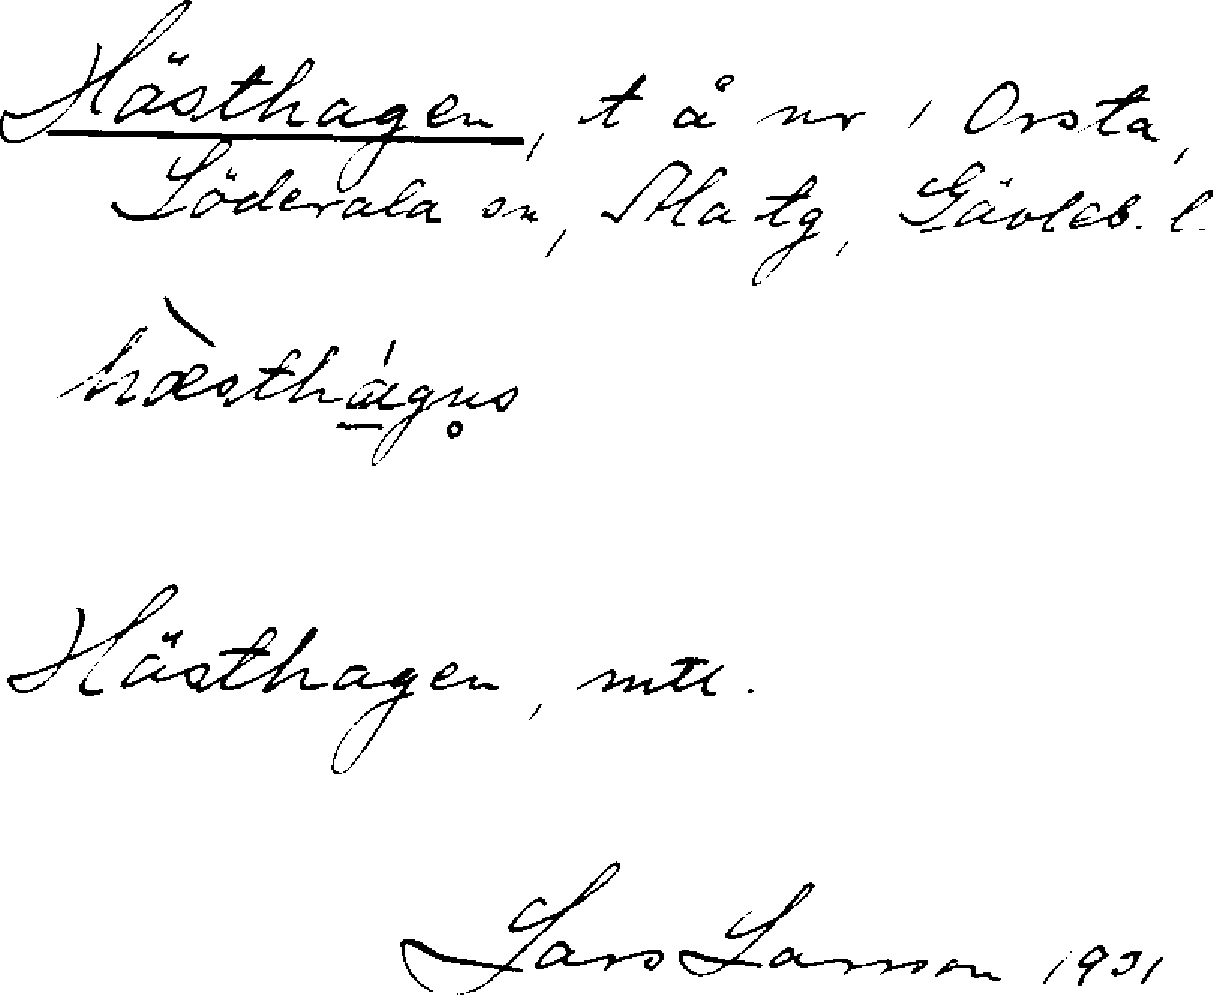 Hästhagen, t å nr 1 Orsta,
Söderala sn, Ala tg, Gävleb. l.
hæsthágn̥s
Hästhagen, mtl.
Lars Larsson 1931